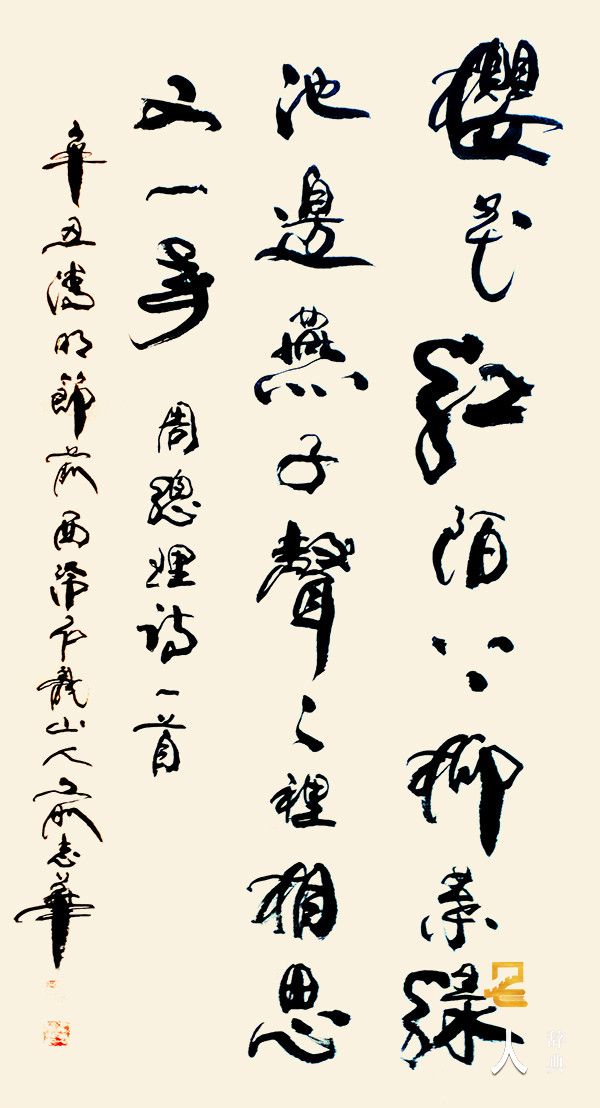 櫻花紅陌上柳葉綠
池邊燕子聲〻裡相思
又一年 周總理詩一首
辛丑清明節前西龍山人志華
人
辞典